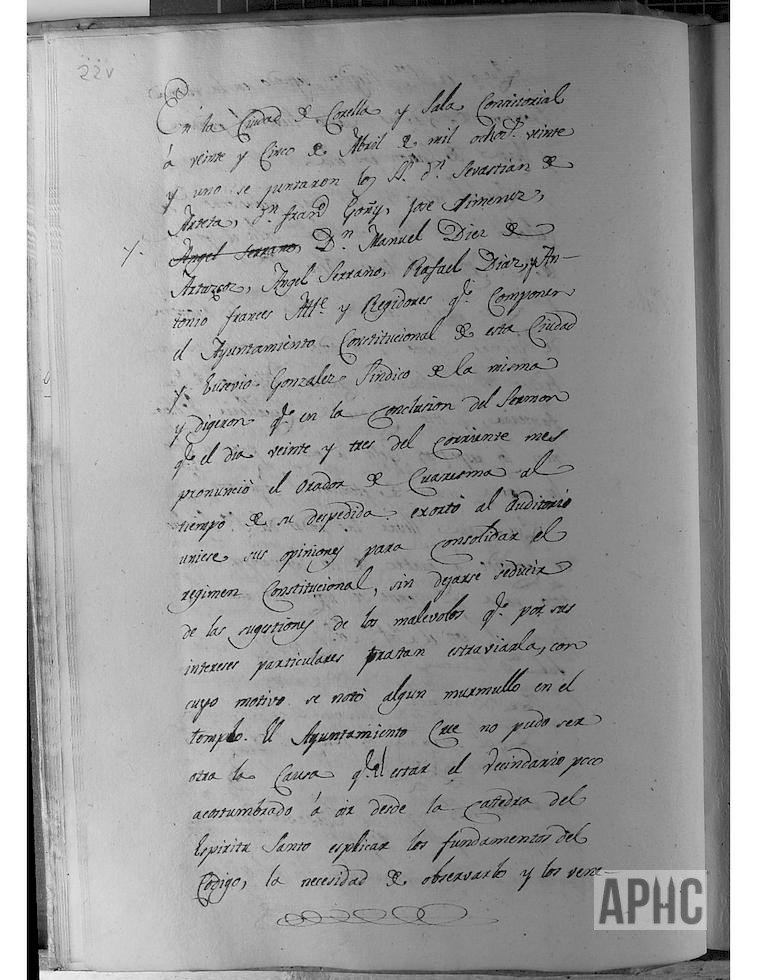 22v
En la Ciudad de Corella y Sala Consistorial
á veinte y Cinco de Abril de mil ochoz.s veinte
y uno se juntaron los S.s d.n Sevastian de
Arteta, d.n fran.co Goñy, Jose Ximenez,
y. Angel Serrano, D.n Manuel Diez de
Artazcoz, Angel Serrano, Rafael Diaz, y An-
tonio frances Att.e y Regidores q.e Componen
el Ayuntamiento Constitucional de esta Ciudad
y Eusevio Gonzalez Sindico de la misma
y digeron q.e en la Conclusion del Sermon
q.e el dia veinte y tres del Corriente mes
pronunció el orador de Cuaresma al
tiempo de su despedida exortó al Auditorio
uniese sus opiniones para Consolidar el
regimen Constitucional, sin dejarse seducir
de las sugestiones de los malevolos q.e por sus
intereses particulares tratan estraviarla, con
cuyo motivo se notó algun murmullo en el
templo. El Ayuntamiento Cree no pudo ser
otra la Causa q.e el estar el Vecindario poco
acostumbrado á oir desde la Catedra del
Espiritu Santo esplicar los fundamentos del
Codigo, la necesidad de observarlo y los vene-
APHC